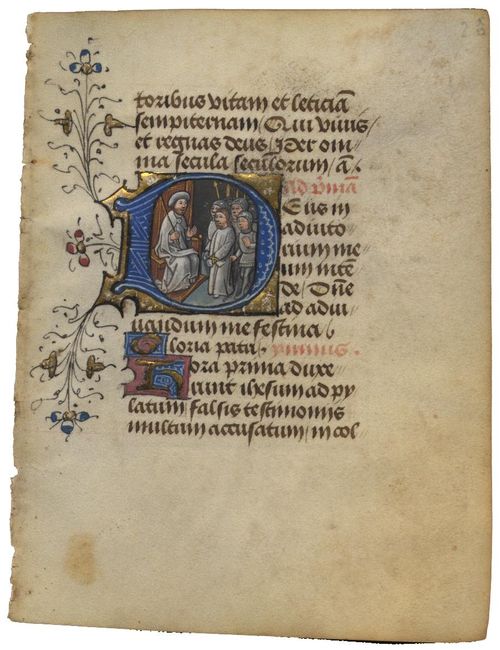 toribus vitam et leticiā
sempiternam / Qui vivis /
et regnas deus / Per om
nia secula seculorum / a᷉ .
ad p̄mā
Deus in
adiuto
rium me
um intē
de / Dn̄e
ad adiu
uandum me festina
Gloria patri . ympnus .
Hora prima duxe
runt ihesum ad py
latum / falsis testimoniis
multum accusatum / in col